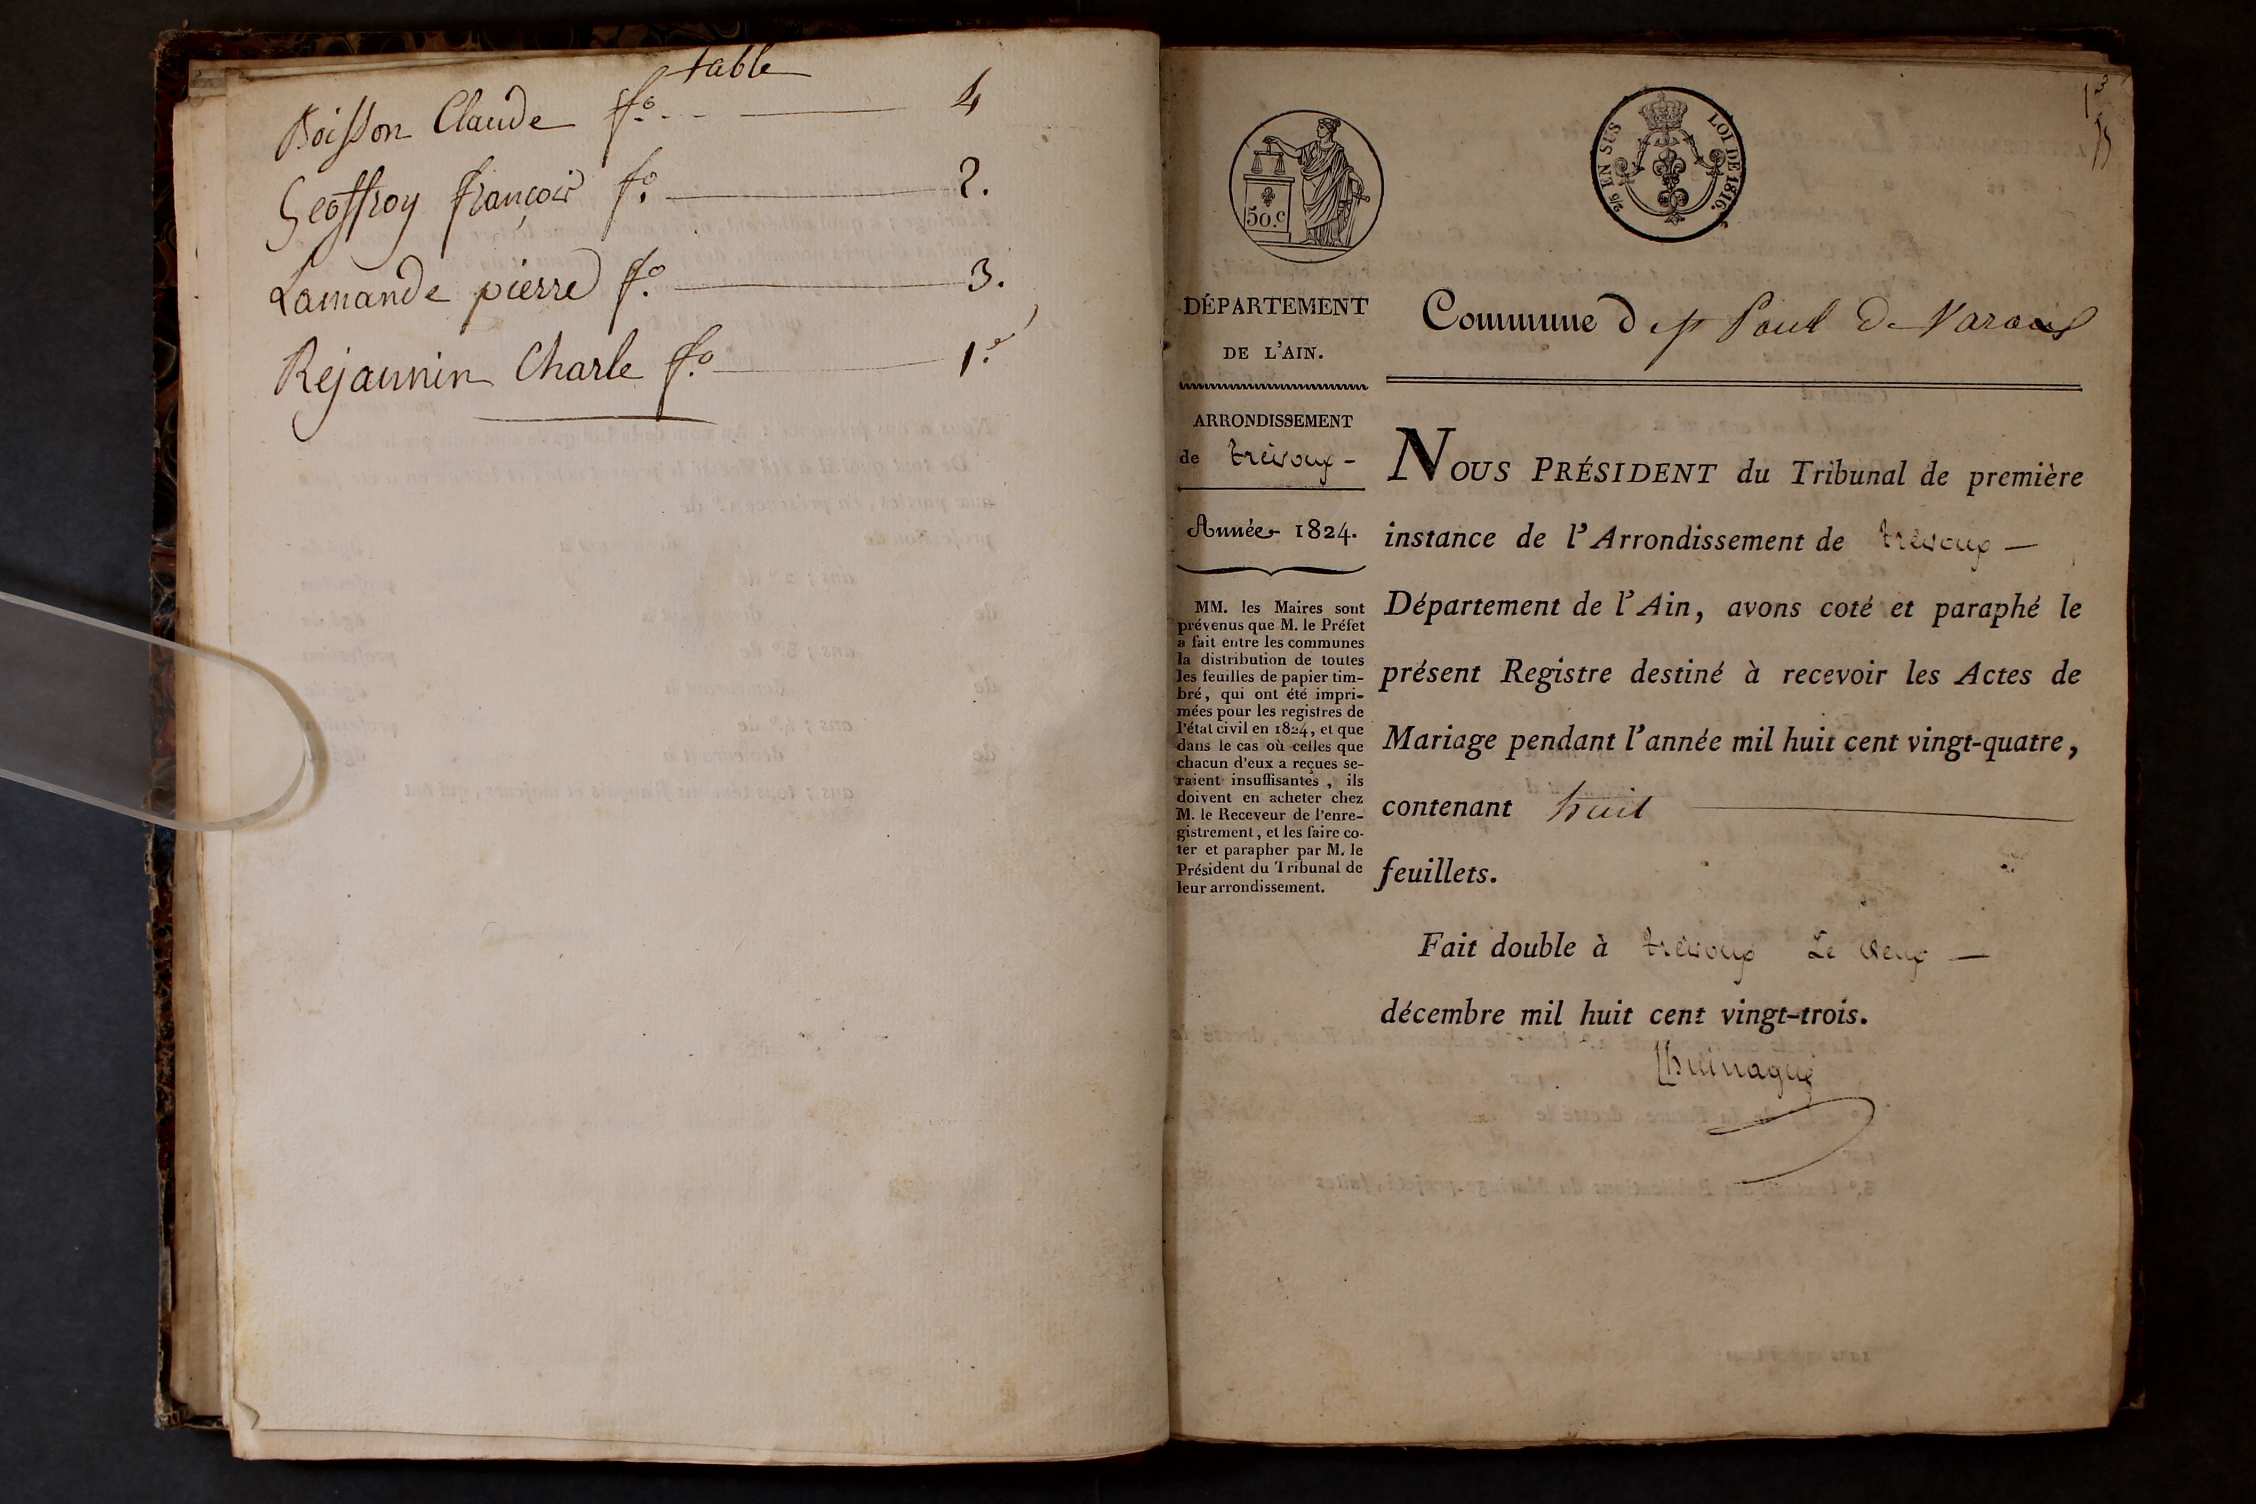 table
Boisson Claude fo. 4
Geoffroy françois fo. 2.
Lamande pierre fo. 3.
Rejaunin Charle fo. 1.er
50.c
2/5 EN SUS
LOI DE 1816.
DÉPARTEMENT
DE L'AIN.
ARRONDISSEMENT
de trévoux -
Année 1824.
MM. les Maires sont
prévenus que M. le Préfet
a fait entre les communes
la distribution de toutes
les feuilles de papier tim-
bré, qui ont été impri-
mées pour les registres de
l'état civil en 1824, et que
dans le cas où celles que
chacun d'eux a reçues se-
raient insuffisantes, ils
doivent en acheter chez
M. le Receveur de l'enre-
gistrement, et les faire co-
ter et parapher par M. le
Président du Tribunal de
leur arrondissement.
Commune d St Paul De Varax
NOUS PRÉSIDENT du Tribunal de première
instance de l'Arrondissement de trévoux —
Département de l'Ain, avons coté et paraphé le
présent Registre destiné à recevoir les Actes de
Mariage pendant l'année mil huit cent vingt-quatre,
contenant huit
feuillets.
Fait double à trévoux Le deux —
décembre mil huit cent vingt-trois.